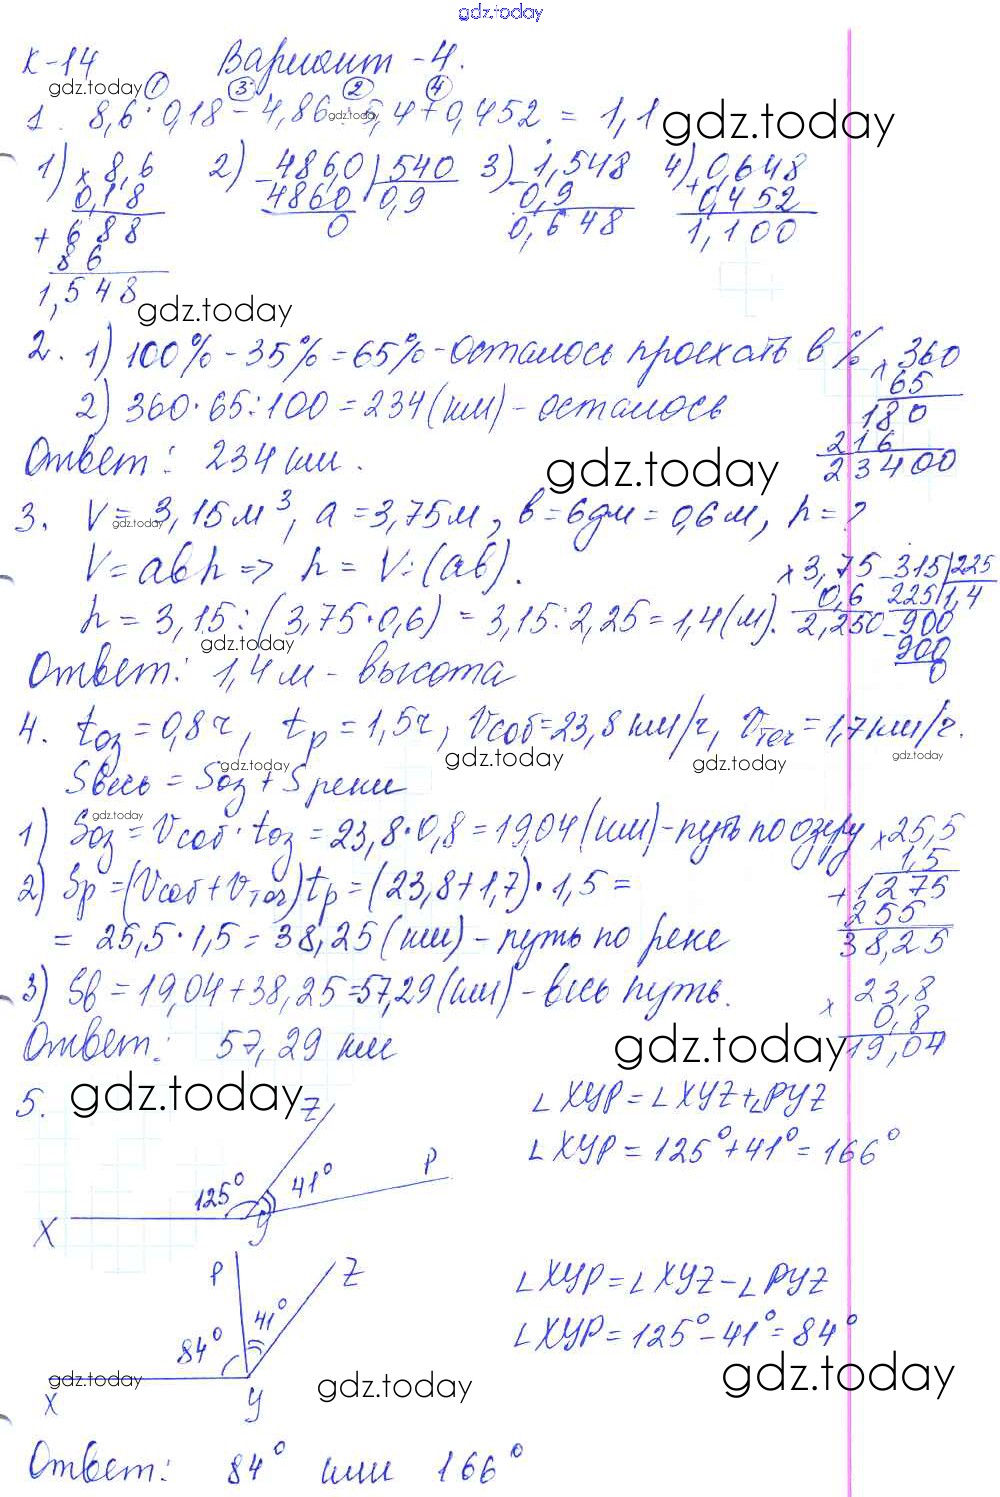 gdz.today
К-14 Вариант - 4.
gdz.today ① ③ ② ④
1. 8,6 · 0,18 - 4,86 : 5,4 + 0,452 = 1,1 gdz.today
gdz.today
1) × 8,6 2) - 486,0 | 540 3) - 1,548 4) + 0,648
0,18 4860 0,9 0,9 0,452
+ 688 0 0,648 1,100
86
1,548 gdz.today
2. 1) 100% - 35% = 65% - осталось проехать в % × 360
65
2) 360 · 65 : 100 = 234 (км) - осталось 180
216
Ответ: 234 км. gdz.today 23400
3. V = 3,15 м³, a = 3,75 м, в = 6 дм = 0,6 м, h = ?
gdz.today
V = авh => h = V : (ав). × 3,75 - 315 | 225
0,6 225 | 1,4
h = 3,15 : (3,75 · 0,6) = 3,15 : 2,25 = 1,4 (м). 2,250 - 900
gdz.today 900
Ответ: 1,4 м - высота 0
4. tоз = 0,8 ч, tр = 1,5 ч, Vсоб = 23,8 км/ч, Vтеч = 1,7 км/ч.
gdz.today gdz.today gdz.today gdz.today
Sвесь = Sоз + Sреки
gdz.today
1) Sоз = Vсоб · tоз = 23,8 · 0,8 = 19,04 (км) - путь по озеру × 25,5
1,5
2) Sр = (Vсоб + Vтеч) tр = (23,8 + 1,7) · 1,5 = + 1275
255
= 25,5 · 1,5 = 38,25 (км) - путь по реке 38,25
3) Sв = 19,04 + 38,25 = 57,29 (км) - весь путь. × 23,8
0,8
Ответ: 57,29 км gdz.today 19,04
5. gdz.today Z ∠XYP = ∠XYZ + ∠PYZ
∠XYP = 125° + 41° = 166°
125° 41° P
X У
P Z ∠XYP = ∠XYZ - ∠PYZ
41°
84° ∠XYP = 125° - 41° = 84°
gdz.today gdz.today gdz.today
X У
Ответ: 84° или 166°